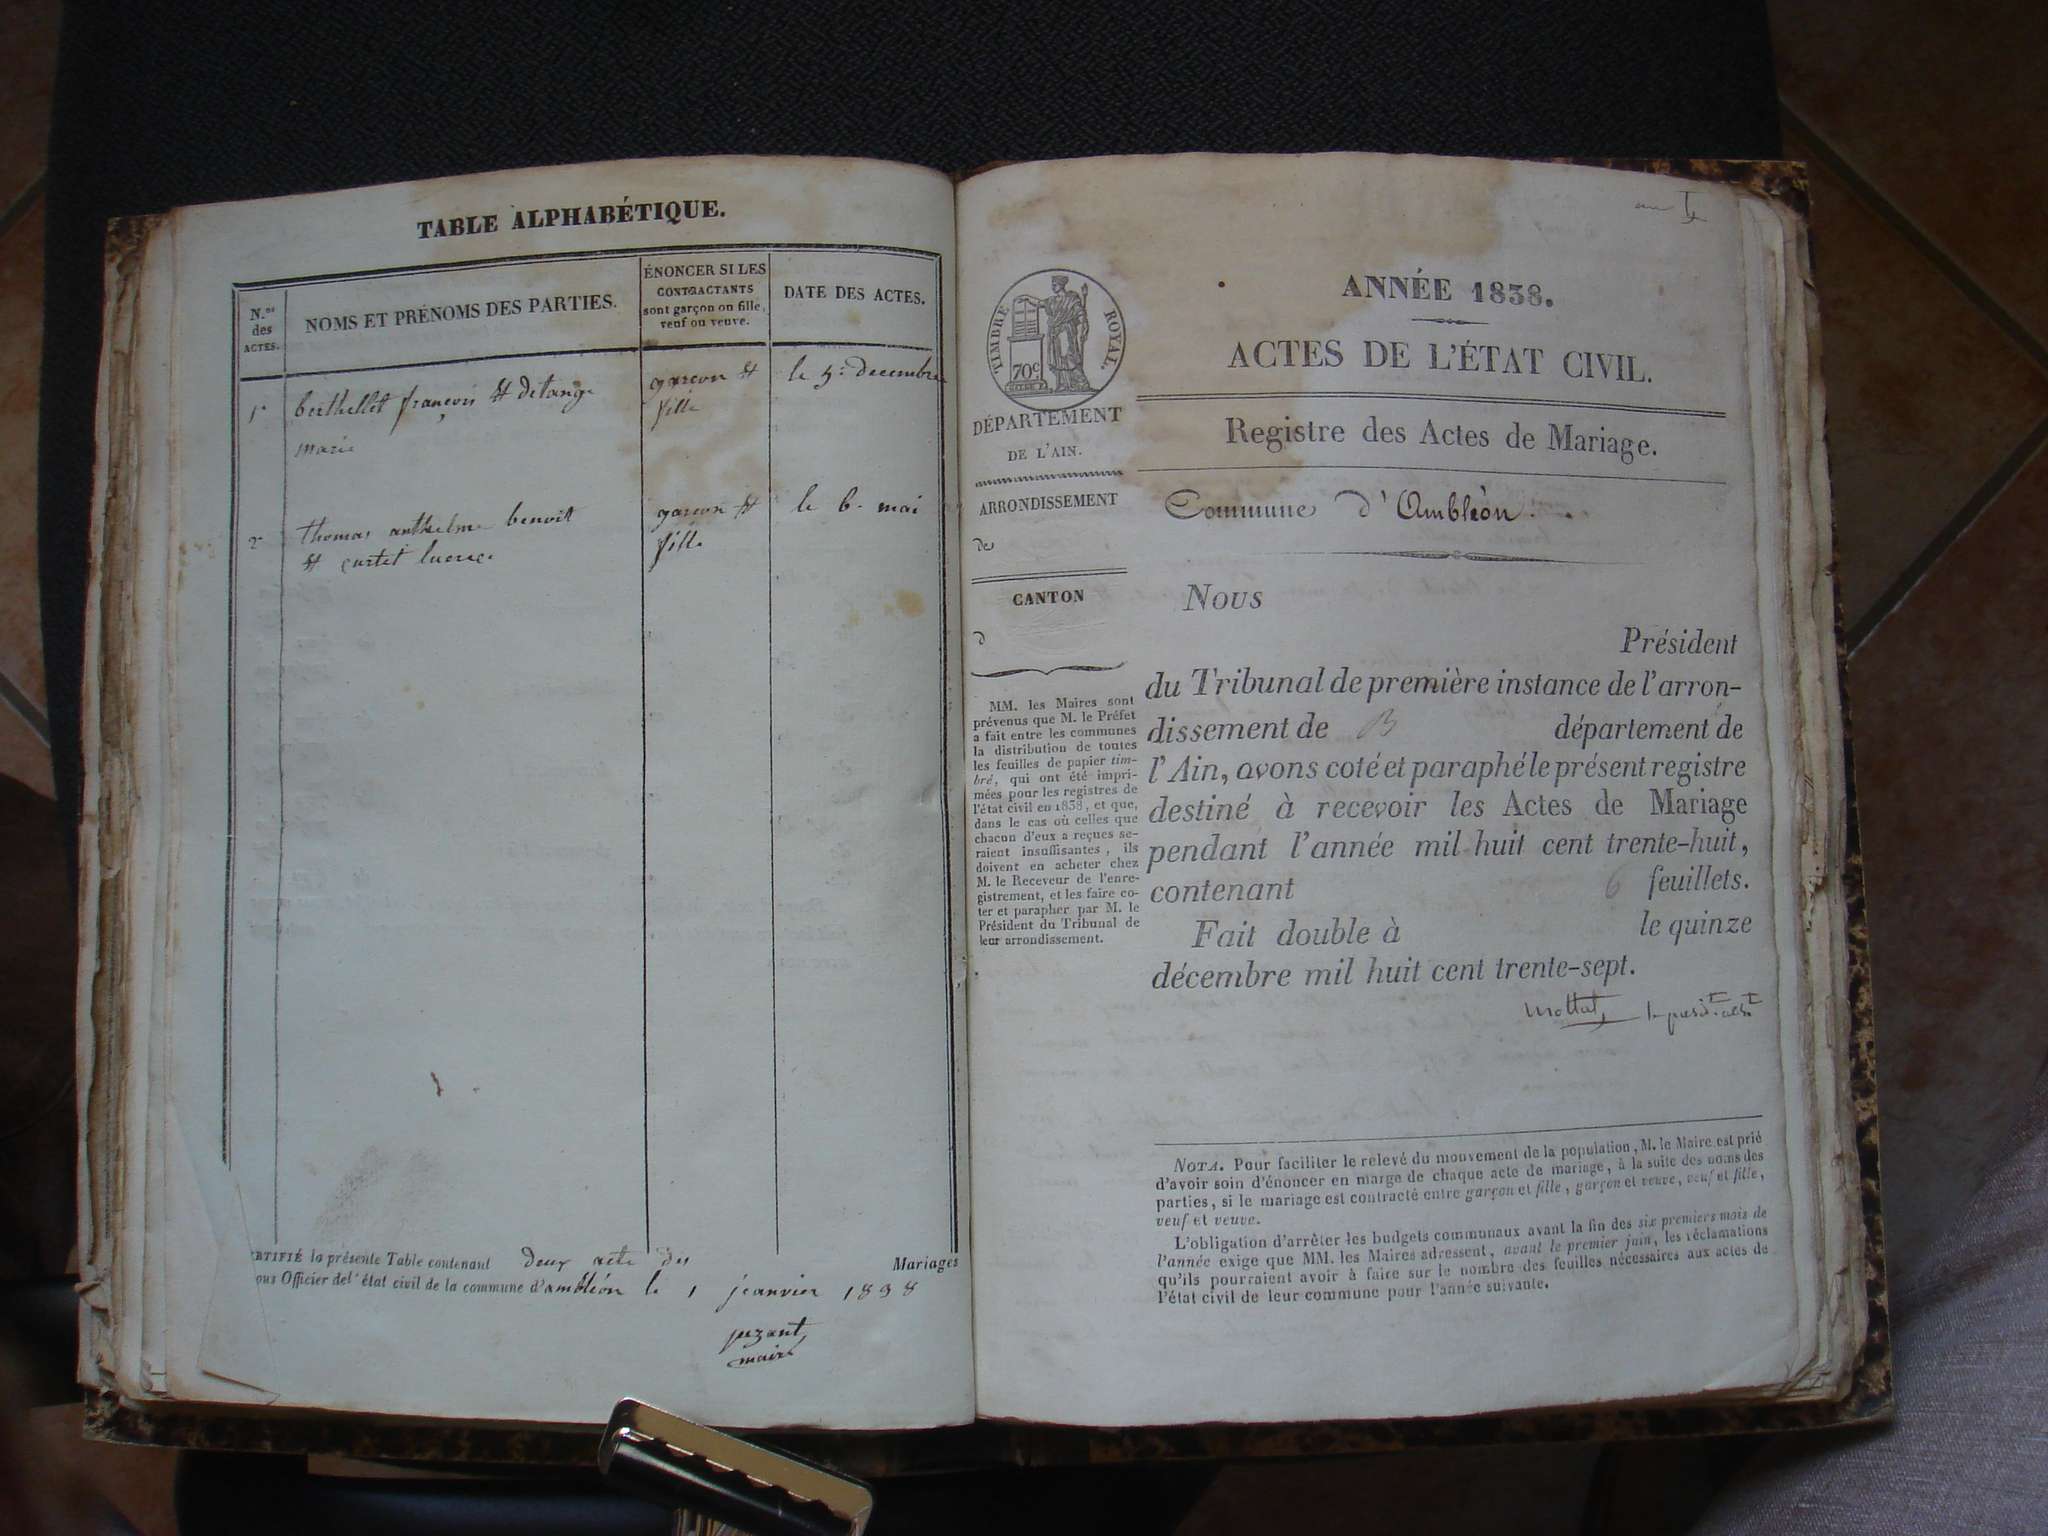 TABLE ALPHABÉTIQUE.
N.os
des
ACTES.
NOMS ET PRÉNOMS DES PARTIES.
ÉNONCER SI LES
CONTRACTANTS
sont garçon ou fille,
veuf ou veuve.
DATE DES ACTES.
1º berthellet françois et detange garçon et le 5: decembre
marie fille
2º thomas anthelme benoit garçon et le 6. mai
et curtet fille
CERTIFIÉ la présente Table contenant deux acte des Mariages
Officier del'état civil de la commune d'ambléon le 1 jeanvier 1838
juzant
maire
TIMBRE ROYAL
70c
DÉPARTEMENT
DE L'AIN.
ARRONDISSEMENT
de
CANTON
d
MM. les Maires sont
prévenus que M. le Préfet
a fait entre les communes
la distribution de toutes
les feuilles de papier tim-
bré, qui ont été impri-
mées pour les registres de
l'état civil en 1838, et que,
dans le cas où celles que
chacun d'eux a reçues se-
raient insuffisantes, ils
doivent en acheter chez
M. le Receveur de l'enre-
gistrement, et les faire co-
ter et parapher par M. le
Président du Tribunal de
leur arrondissement.
ANNÉE 1838.
ACTES DE L'ÉTAT CIVIL.
Registre des Actes de Mariage.
Commune d'Ambléon
Nous
Président
du Tribunal de première instance de l'arron-
dissement de B département de
l'Ain, avons coté et paraphé le présent registre
destiné à recevoir les Actes de Mariage
pendant l'année mil huit cent trente-huit,
contenant 6 feuillets.
Fait double à le quinze
décembre mil huit cent trente-sept.
Mottat
NOTA. Pour faciliter le relevé du mouvement de la population, M. le Maire est prié
d'avoir soin d'énoncer en marge de chaque acte de mariage, à la suite des noms des
parties, si le mariage est contracté entre garçon et fille, garçon et veuve, veuf et fille,
veuf et veuve.
L'obligation d'arrêter les budgets communaux avant la fin des six premiers mois de
l'année exige que MM. les Maires adressent, avant le premier juin, les réclamations
qu'ils pourraient avoir à faire sur le nombre des feuilles nécessaires aux actes de
l'état civil de leur commune pour l'année suivante.